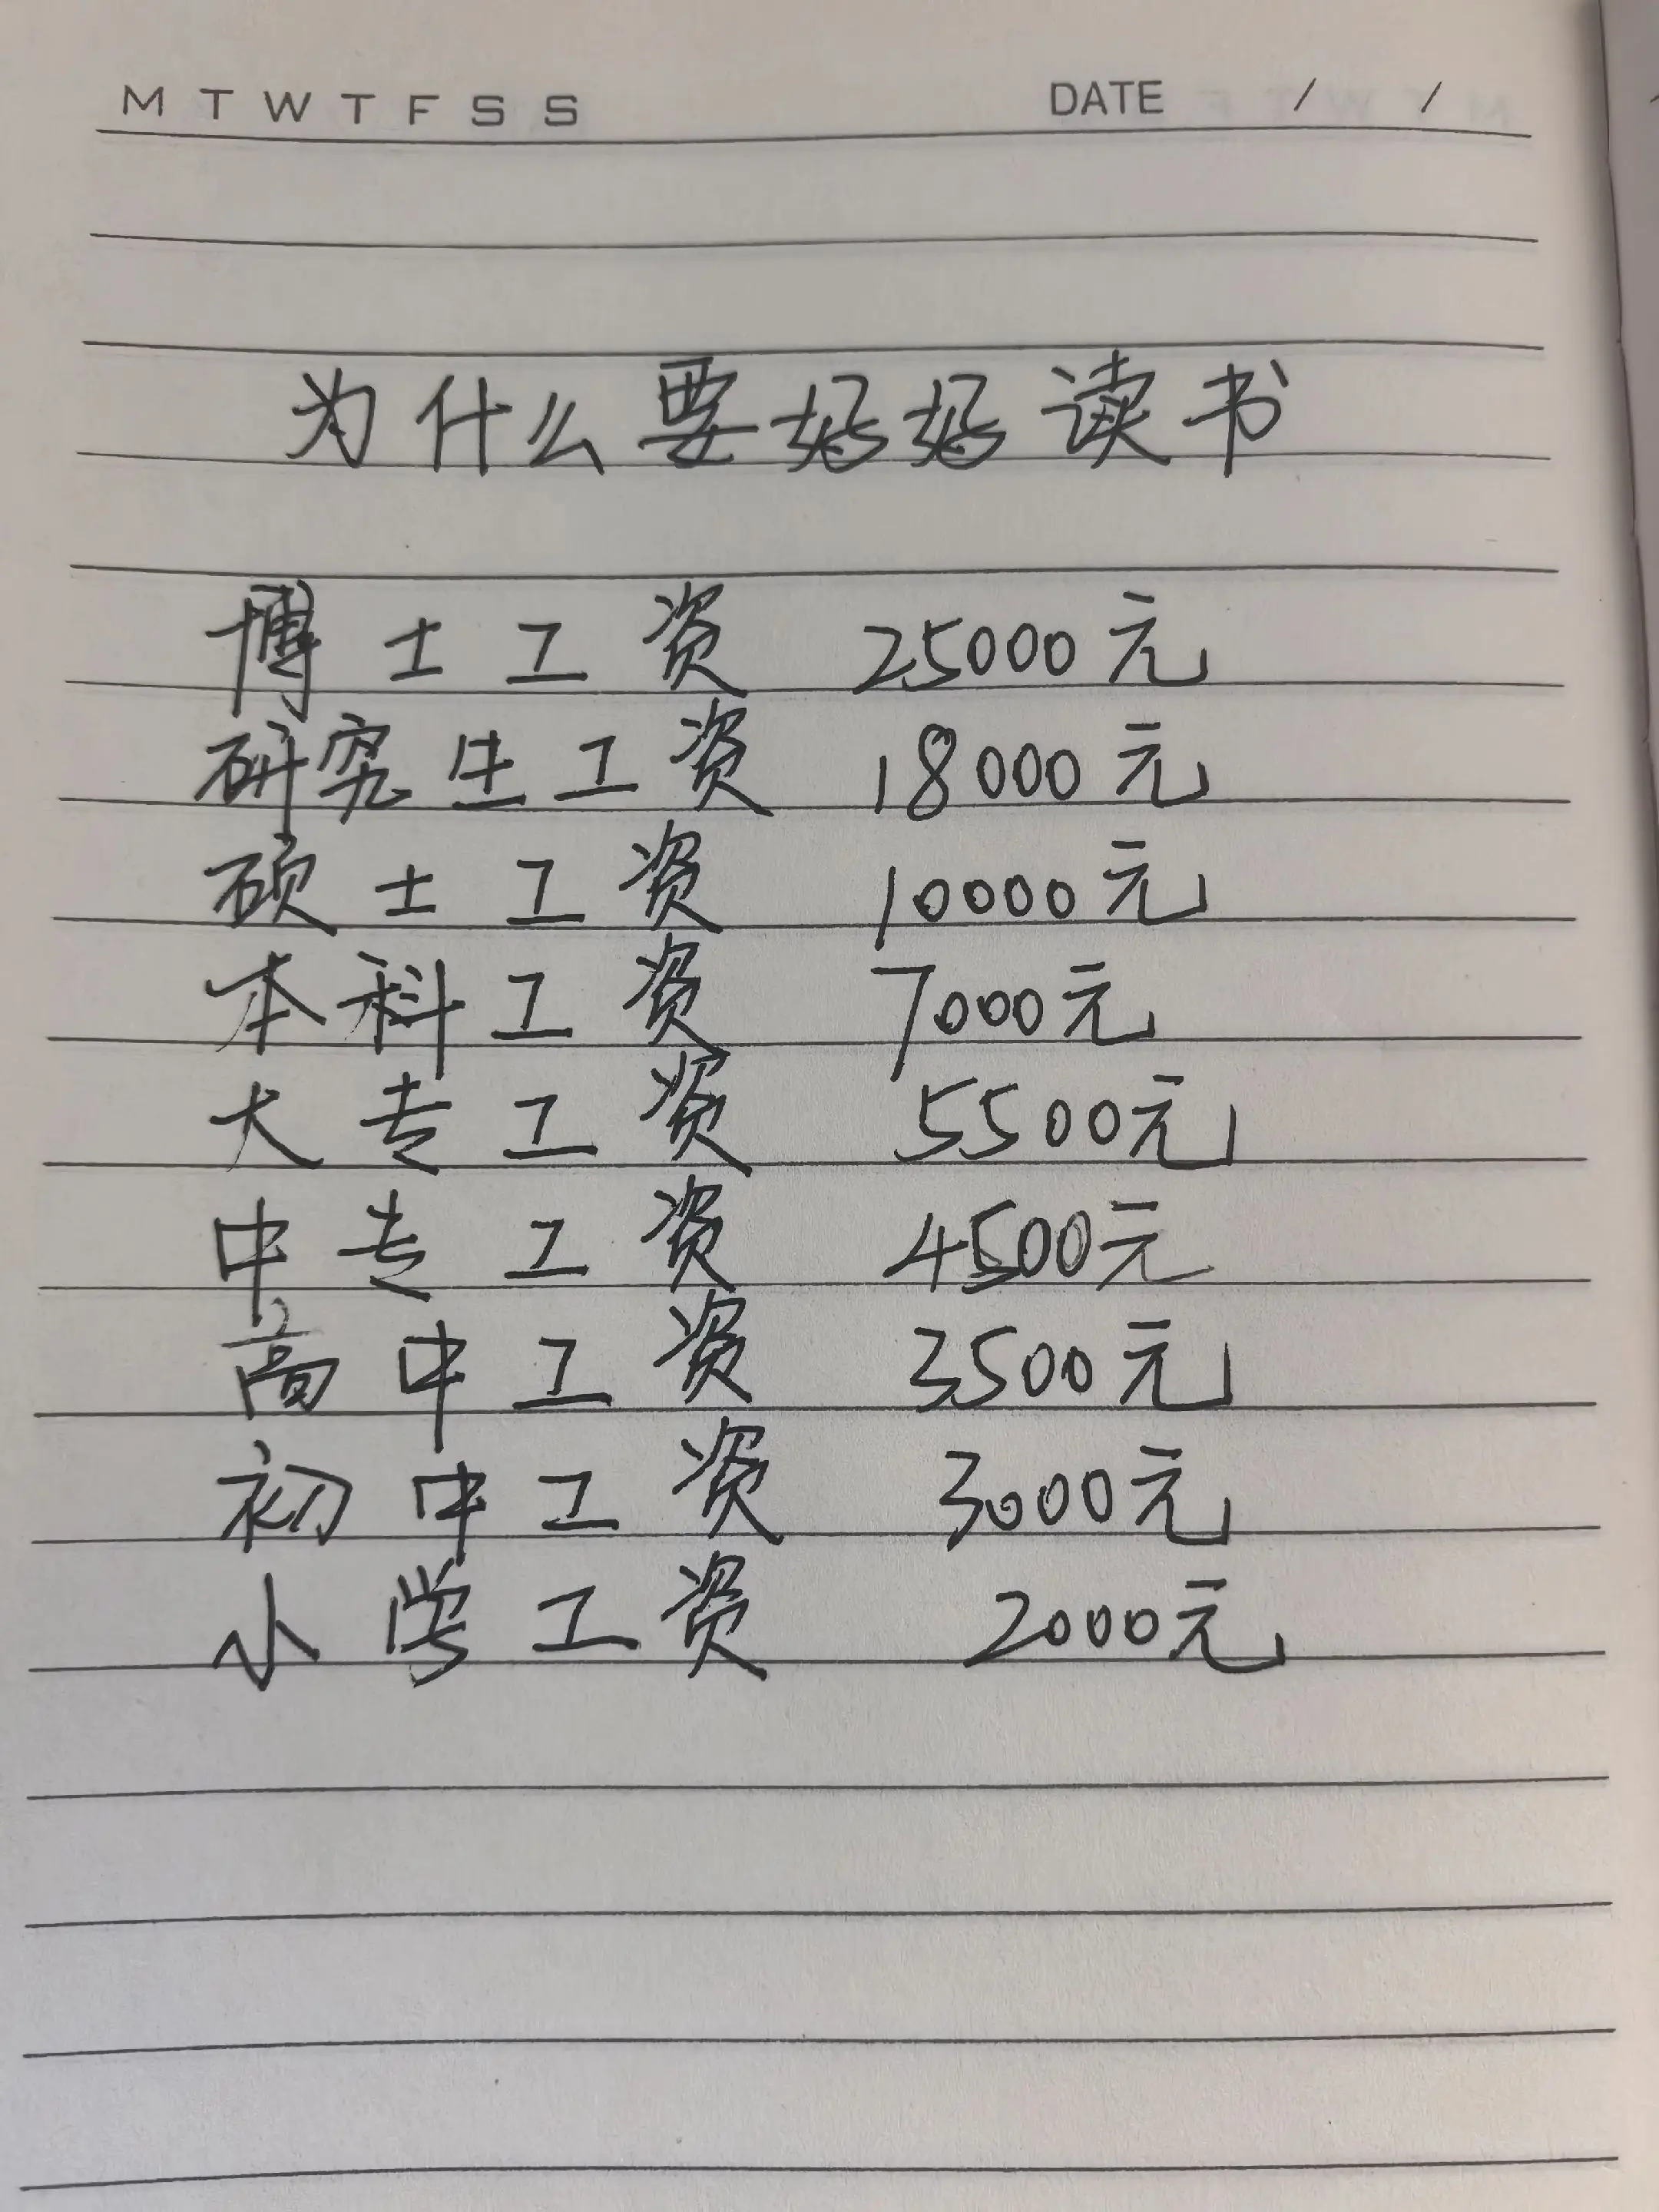 M T W T F S S DATE / /
为什么要好好读书
博士工资 25000元
研究生工资 18000元
硕士工资 10000元
本科工资 7000元
大专工资 5500元
中专工资 4500元
高中工资 3500元
初中工资 3000元
小学工资 2000元